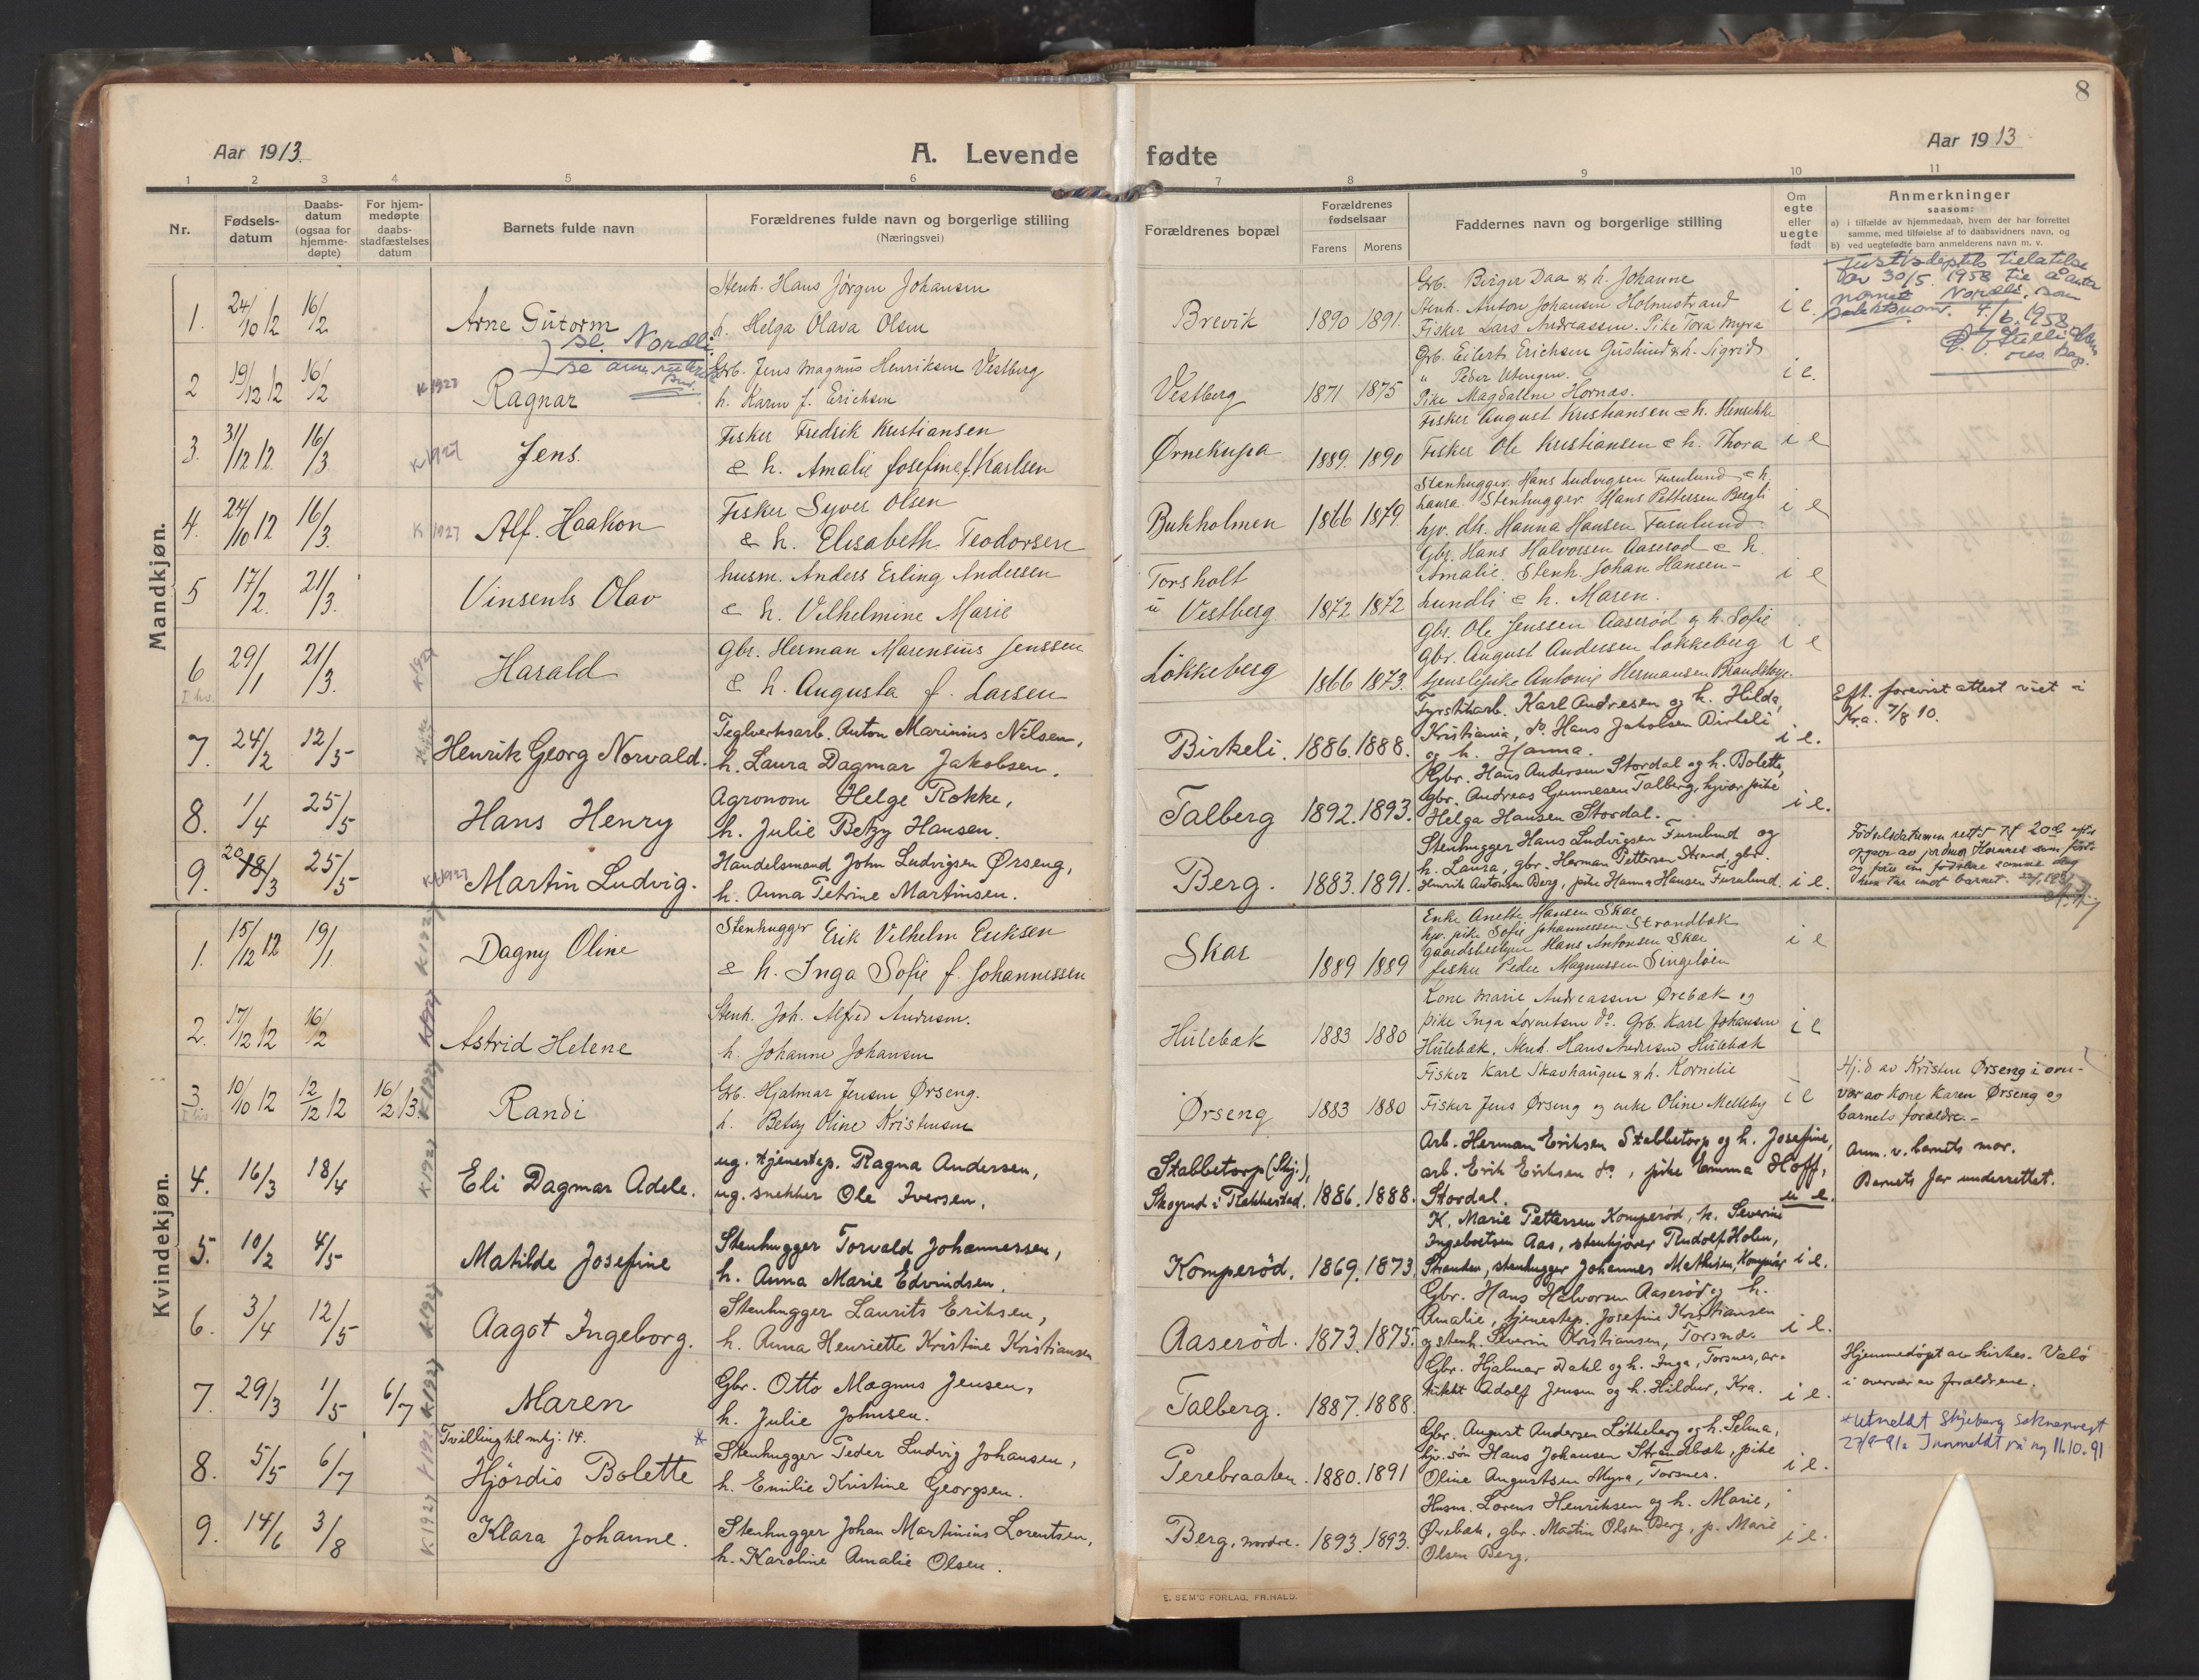 8
Aar 1913.
A. Levende fødte
Aar 1913
1 2 3 4 5 6 7 8 9 10 11
Nr.
Fødsels-
datum
Daabs-
datum
(ogsaa for
hjemme-
døpte)
For hjem-
medøpte
daabs-
stadfæstelses
datum
Barnets fulde navn
Forældrenes fulde navn og borgerlige stilling
(Næringsvei)
Forældrenes bopæl
Forældrenes
fødselsaar
Farens Morens
Faddernes navn og borgerlige stilling
Om
egte
eller
uegte
født
Anmerkninger
saasom:
a) i tilfælde av hjemmedaab, hvem der har forrettet
samme, med tilføielse af to daabsvidners navn, og
b) ved uegtefødte barn anmelderens navn m. v.
Mandkjøn.
1. 24/10 12 16/2 Arne Gutorm
sl. Nordli
Stenh. Hans Jørgen Johansen
h. Helga Olava Olsen
Brevik 1890 1891.
Grb. Birger Daa & h. Johanne
Stenh. Anton Johansen Holmestrand
Fisker Lars Andreassen. Pike Tora Myra
i e.
Justisdeptets tillatelse
av 30/5 1958 til å anta
navnet Nordli som
slektsnavn. 4/6 1958
2 19/12 12 16/2 K 1928 Ragnar
Grb. Jens Magnus Henriksen Vestberg
h. Karen f. Erichsen
Vestberg 1871 1875
Grb. Eilert Erichsen Guslund & h. Sigrid
" Peder Utengen.
Pike Magdalene Hornæs.
i e.
3. 31/12 12. 16/3 K 1927 Jens.
Fisker Fredrik Kristiansen
& h. Amalie Josefine f. Karlsen
Ørnekupa 1889. 1890
Fisker August Kristiansen & h. Henrikke
Fisker Ole Kristiansen & h. Thora
i e
4. 24/10 12 16/3. K 1927 Alf. Haakon
Fisker Syver Olsen
& h. Elisabeth Teodorsen
Bukholmen 1866 1879
Stenhugger Hans Ludvigsen Furulund & h.
Laura. Stenhugger Hans Pettersen Bergli
hjv. dtr. Hanna Hansen Furulund
i e
5 17/2. 21/3. Vinsents Olav
husm. Anders Erling Andersen
& h. Vilhelmine Marie
Torsholt
u Vestberg 1872 1872
Gbr. Hans Halvorsen Aaserød & h.
Amalie. Stenh. Johan Hansen-
Lundli & h. Maren.
i e
6 29/1 21/3. K 1927 Harald
Gbr. Herman Marensius Jenssen
& h. Augusta f. Larsen
Løkkeberg 1866 1873.
Gbr. Ole Jenssen Aaserød og h. Sofie
Gbr. August Andersen Løkkeberg
tjenestepike Antonie Hermansen
i e
7. 24/2 12/5 Henrik Georg Norvald.
Teglverksarb. Anton Marinius Nilsen,
h. Laura Dagmar Jakobsen.
Birkeli. 1886. 1888.
Fyrstikarb. Karl Andresen og h. Hilda,
Kristiania, do. Hans Jakobsen Birkeli
og h. Hanna.
i e.
Eft. forevist attest viet i
Kra. 7/8 10.
8. 1/4 25/5 Hans Henry
Agronom Helge Rokke,
h. Julie Betzy Hansen.
Talberg 1892. 1893.
Gbr. Hans Andersen Stordal og h. Bolette,
gbr. Andreas Gunnesen Talberg, hjvær. pike
Helga Hansen Stordal.
i e.
9. 20 18/3 25/5 K 1927 Martin Ludvig.
Handelsmand John Ludvigsen Ørseng,
h. Anna Petrine Martinsen.
Berg. 1883. 1891.
Stenhugger Hans Ludvigsen Furulund og
h. Laura, gbr. Herman Pettersen Strand, gbr.
Henrik Antonsen Berg, pike Hanna Hansen Furulund.
i e.
Kvindekjøn.
1. 15/12 12 19/1. K 1927 Dagny Oline
Stenhugger Erik Vilhelm Eriksen
& h. Inga Sofie f. Johannessen
Skar 1889 1889
Enke Anette Hansen Skar
hjv. pike Sofie Johannessen Strandbæk
gaardsbestyrer Hans Antonsen Skar
fisker Peder Magnussen Singeløen
i e
2. 17/12 12 16/2 K 1927 Astrid Helene
Stenh. Joh. Alfred Andresen.
h. Johanne Johansen
Hulebæk 1883 1880
Kone Marie Andreassen Ørebæk og
pike Inga Lorentsen do. Grb. Karl Johansen
Hulebæk. Stenh. Hans Andresen Hulebæk
i e
3. 10/10 12 12/12 12 16/2 13. K 1927 Randi
Grb. Hjalmar Jensen Ørseng.
h. Betsy Oline Kristensen
Ørseng 1883 1880
Fisker Karl Skavhaugen & h. Kornelie
Fisker Jens Ørseng og enke Oline Melleby
i e
Hj. d. av Kristen Ørseng i over-
vær av Kone Karen Ørseng og
barnets forældre.-
4. 16/3 18/4 K 1927 Eli Dagmar Adele.
ug. tjenestep. Ragna Andersen,
ug. snekker Ole Iversen.
Stabbetorp (Skj.),
Skogrud i Rakkestad. 1886. 1888.
Arb. Herman Eriksen Stabbetorp og h. Josefine,
arb. Erik Eriksen do., pike Emma Hoff,
Stordal.
u e.
Anm. v. barnets mor.
Barnets far underrettet.
5. 10/2 4/5 Matilde Josefine
Stenhugger Torvald Johannessen,
h. Anna Marie Edvindsen.
Komperød. 1869. 1873.
K. Marie Pettersen Komperød, k. Severine
Ingebretsen Aas, stenkjører Rudolf Holen,
Stranden, stenhugger Johannes Mathisen,
i e.
6. 3/4 12/5 K 1927 Aagot Ingeborg.
Stenhugger Laurits Eriksen,
h. Anna Henriette Kristine Kristiansen
Aaserød. 1873. 1875.
Gbr. Hans Halvorsen Aaserød og h.
Amalie, tjenestep. Josefine Kristiansen
og stenh. Severin Kristiansen, Torsnes.
i e.
7. 29/3 1/5 6/7 K 1927 Maren
Gbr. Otto Magnus Jensen,
h. Julie Johnsen.
Talberg. 1887. 1888.
Gbr. Hjalmar Dahl og h. Inga, Torsnes, ar-
kitekt Adolf Jensen og h. Hildur, Kra.
i e.
Hjemmedøpt av kirkes. Valø
i overvær av forældrene.
8. 5/5 6/7 K 1927
Tvilling til mkj: 14. *
Hjördis Bolette
Stenhugger Peder Ludvig Johansen,
h. Emilie Kristine Georgsen.
Perebraaten. 1880. 1891
Gbr. August Andersen Løkkeberg og h. Selma,
hjv. søn Hans Johansen Strandbæk, pike
Oline Augustsen Myra, Torsnes.
i e.
* Utmeldt Skjeberg
Innmeldt på ny 11.10.91
9. 14/6 3/8 K 1927 Klara Johanne.
Stenhugger Johan Martinius Lorentsen,
h. Karoline Amalie Olsen.
Berg, nordre. 1893. 1893.
Husm. Lorens Henriksen og h. Marie,
Ørebæk, gbr. Martin Olsen Berg, p. Marie
Olsen Berg.
i e.
E. SEM'S FORLAG, FR.HALD.